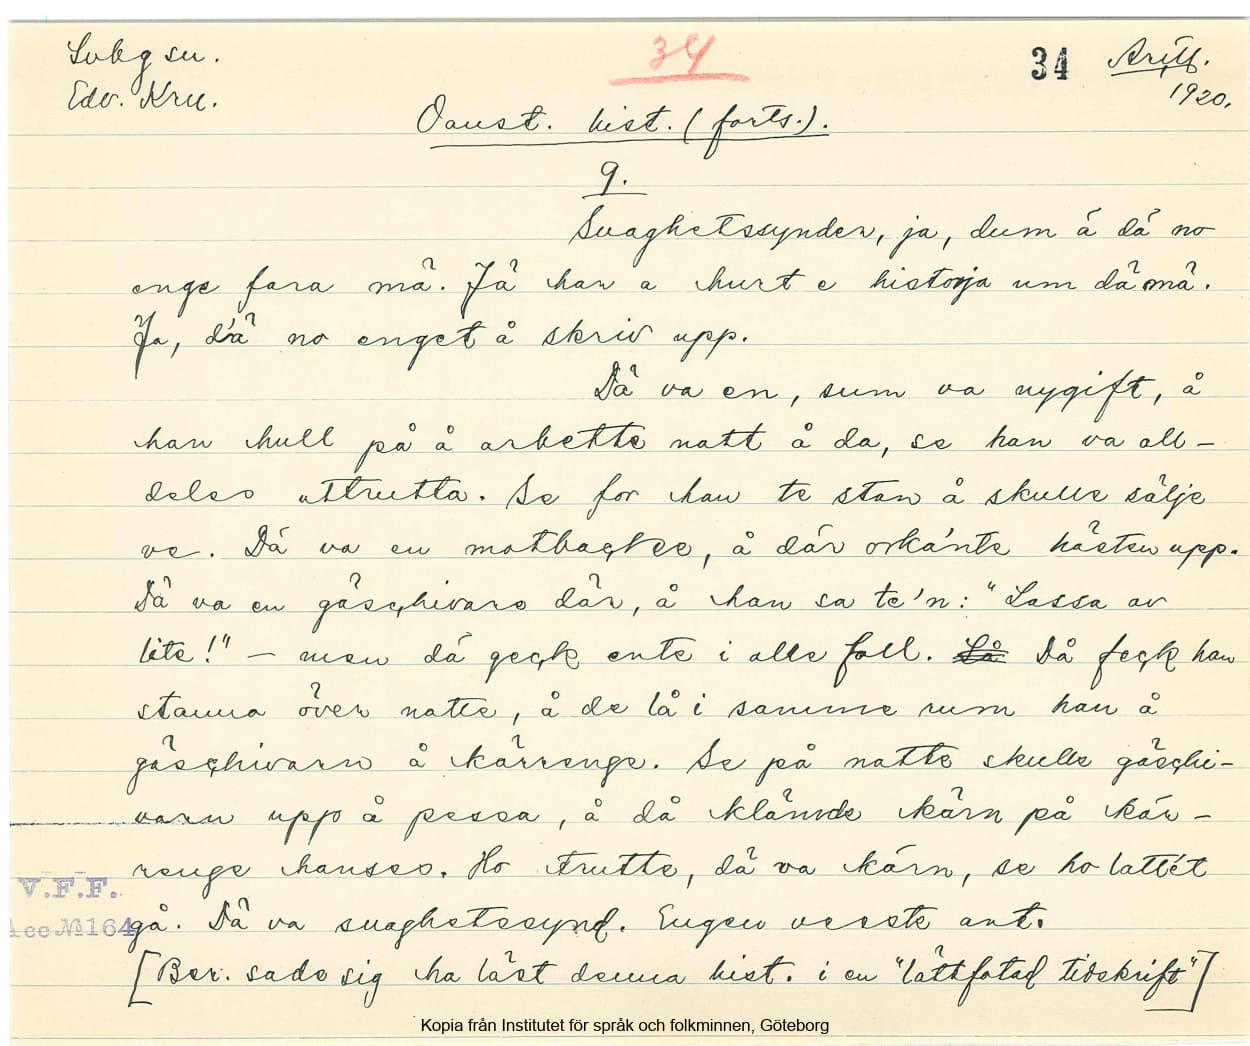 34
34 Aritl.
Edv. Kru. 1920.
Oanst. hist. (forts.).
9.
Svaghetssynder, ja, dum ä dä no
enge fara mä. Jä har a hurt e historja um dä mä.
Ja, d'ä no enget å skriv upp.
Dä va en, sum va nygift, å
han hull på å arbette natt å da, se han va all-
deles uttrutta. Se for han te stan å skulle sälje
ve. Dä va en motbacke, å där orka'nte hästen upp.
Dä va en gäsçhivare där, å han sa te'n: "Lassa av
lite!" — men dä geçk ente i alle fall. Då feçk han
stanna över natte, å de lå i samme rum han å
gäsçhivarn å kärrenge. Se på natte skulle gäsçhi-
varn upp å pessa, å då klämde kärn på kär-
renge hanses. Ho trutte, dä va kärn, se ho lattét
gå. Dä va svaghetssynd. Engen vesste ant.
[Ber. sade sig ha läst denna hist. i en "lättfotad tidskrift"]
V.F.F.
Acc № 164
Kopia från Institutet för språk och folkminnen, Göteborg